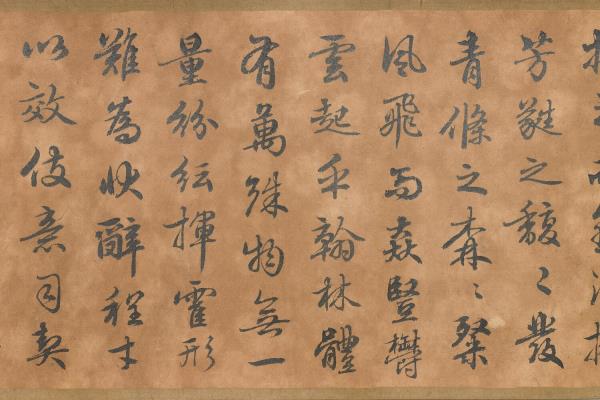 芳蕤之馥〻發
青條之森〻粲
風飛而猋豎欝
雲起乎翰林體
有萬殊物無一
量紛紜揮霍形
難為狀辭程才
以效伎意司契